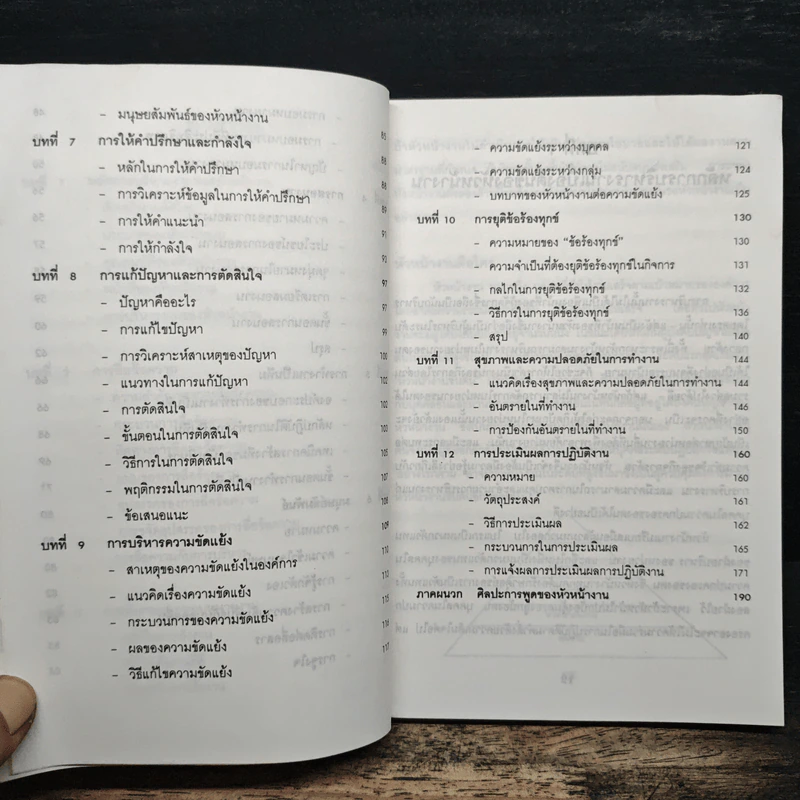 - มนุษยสัมพันธ์ของหัวหน้างาน 85
บทที่ 7 การให้คำปรึกษาและกำลังใจ 87
- หลักในการให้คำปรึกษา 87
- การวิเคราะห์ข้อมูลในการให้คำปรึกษา 89
- การให้คำแนะนำ 91
- การให้กำลังใจ 92
บทที่ 8 การแก้ปัญหาและการตัดสินใจ 97
- ปัญหาคืออะไร 97
- การแก้ไขปัญหา 99
- การวิเคราะห์สาเหตุของปัญหา 100
- แนวทางในการแก้ปัญหา 102
- การตัดสินใจ 102
- ขั้นตอนในการตัดสินใจ 103
- วิธีการในการตัดสินใจ 105
- พฤติกรรมในการตัดสินใจ 107
- ข้อเสนอแนะ 108
บทที่ 9 การบริหารความขัดแย้ง 109
- สาเหตุของความขัดแย้งในองค์การ 110
- แนวคิดเรื่องความขัดแย้ง 113
- กระบวนการของความขัดแย้ง 115
- ผลของความขัดแย้ง 116
- วิธีแก้ไขความขัดแย้ง 117
- ความขัดแย้งระหว่างบุคคล 121
- ความขัดแย้งระหว่างกลุ่ม 124
- บทบาทของหัวหน้างานต่อความขัดแย้ง 125
บทที่ 10 การยุติข้อร้องทุกข์ 130
- ความหมายของ "ข้อร้องทุกข์" 130
- ความจำเป็นที่ต้องยุติข้อร้องทุกข์ในกิจการ 131
- กลไกในการยุติข้อร้องทุกข์ 132
- วิธีการในการยุติข้อร้องทุกข์ 136
- สรุป 140
บทที่ 11 สุขภาพและความปลอดภัยในการทำงาน 144
- แนวคิดเรื่องสุขภาพและความปลอดภัยในการทำงาน 144
- อันตรายในที่ทำงาน 146
- การป้องกันอันตรายในที่ทำงาน 150
บทที่ 12 การประเมินผลการปฏิบัติงาน 160
- ความหมาย 160
- วัตถุประสงค์ 161
- วิธีการประเมินผล 162
- กระบวนการในการประเมินผล 165
- การแจ้งผลการประเมินผลการปฏิบัติงาน 171
ภาคผนวก ศิลปะการพูดของหัวหน้างาน 190